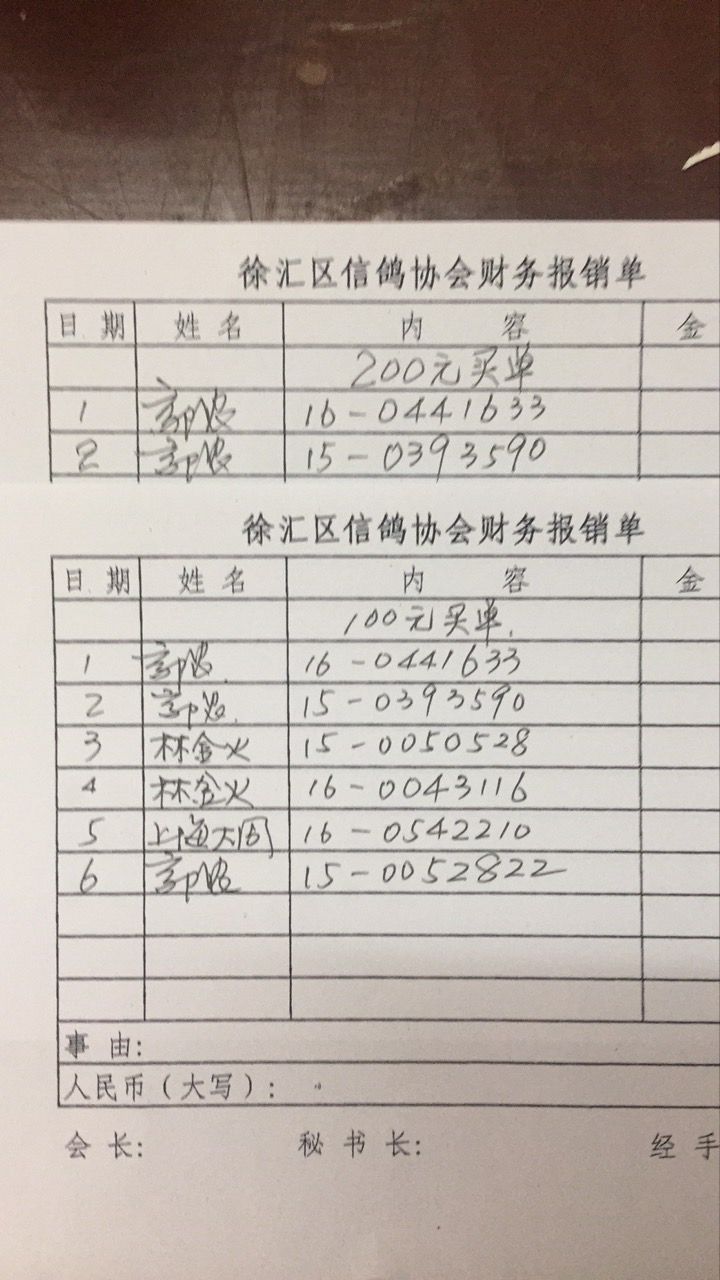 徐汇区信鸽协会财务报销单
日 期 姓 名 内 容 金
200元买单
1 16-0441633
2 15-0393590
徐汇区信鸽协会财务报销单
日 期 姓 名 内 容 金
100元买单.
1 16-0441633
2 15-0393590
3 林金火 15-0050528
4 林金火 16-0043116
5 上海大周 16-0542210
6 15-0052822
事 由:
人民币(大写):
会 长: 秘 书 长: 经 手